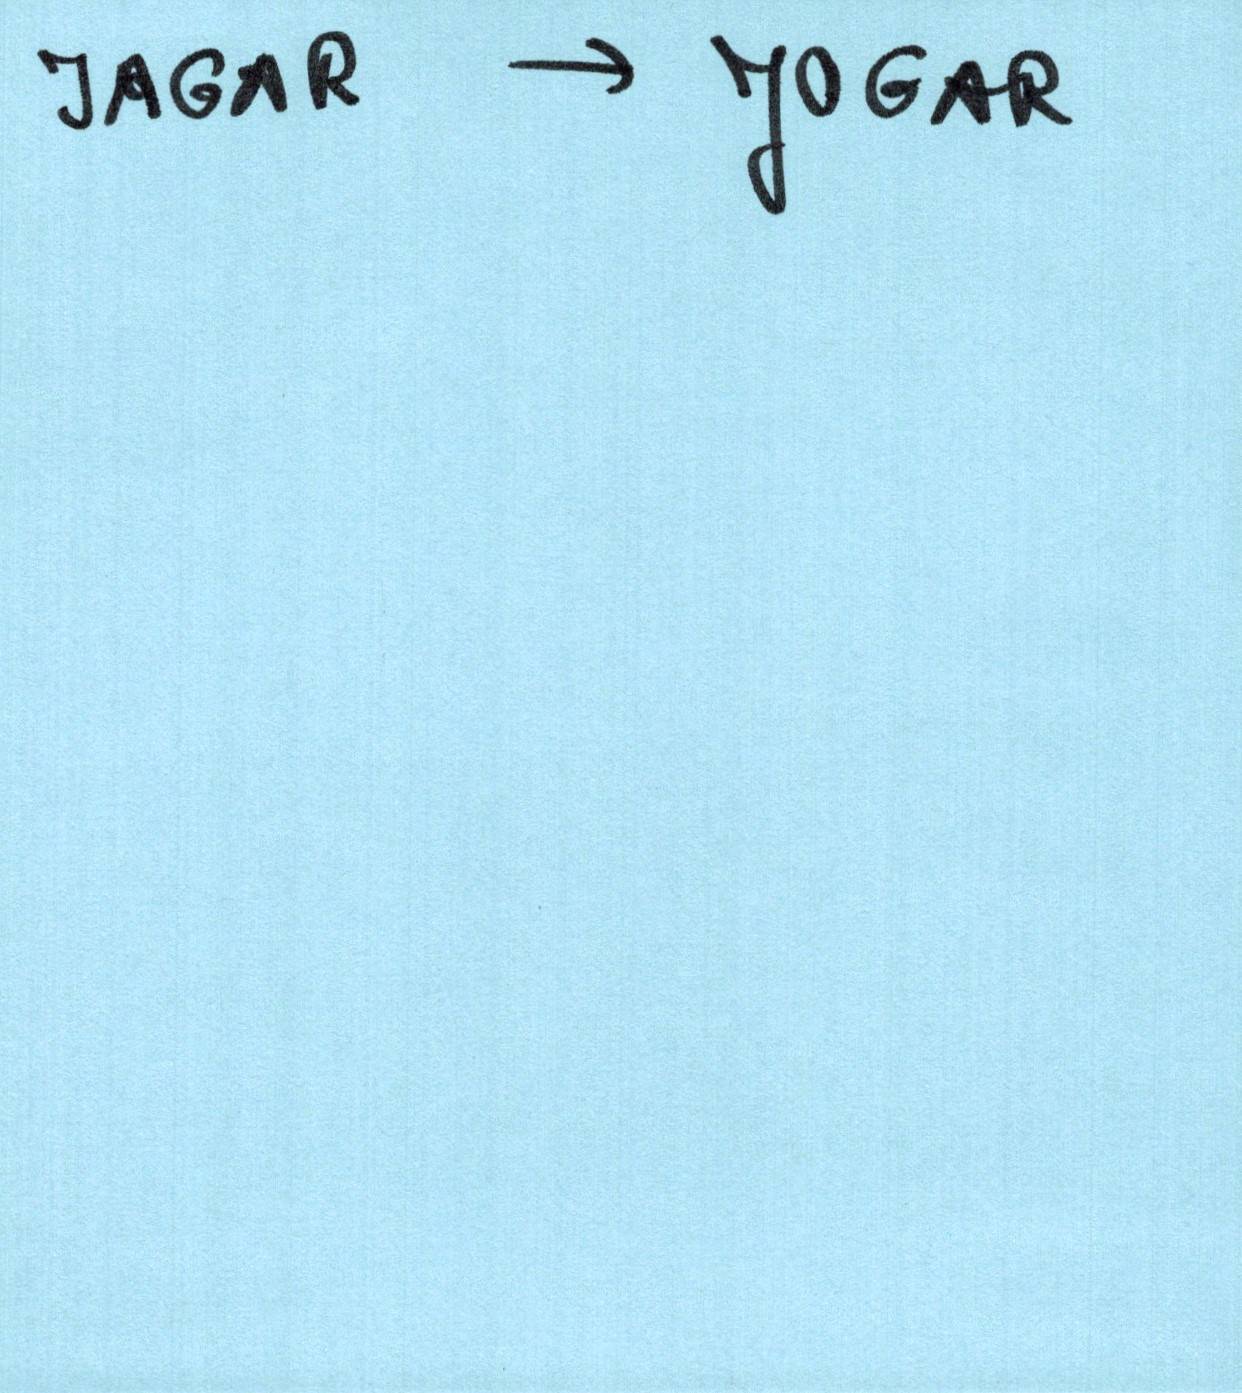 JAGAR → JOGAR